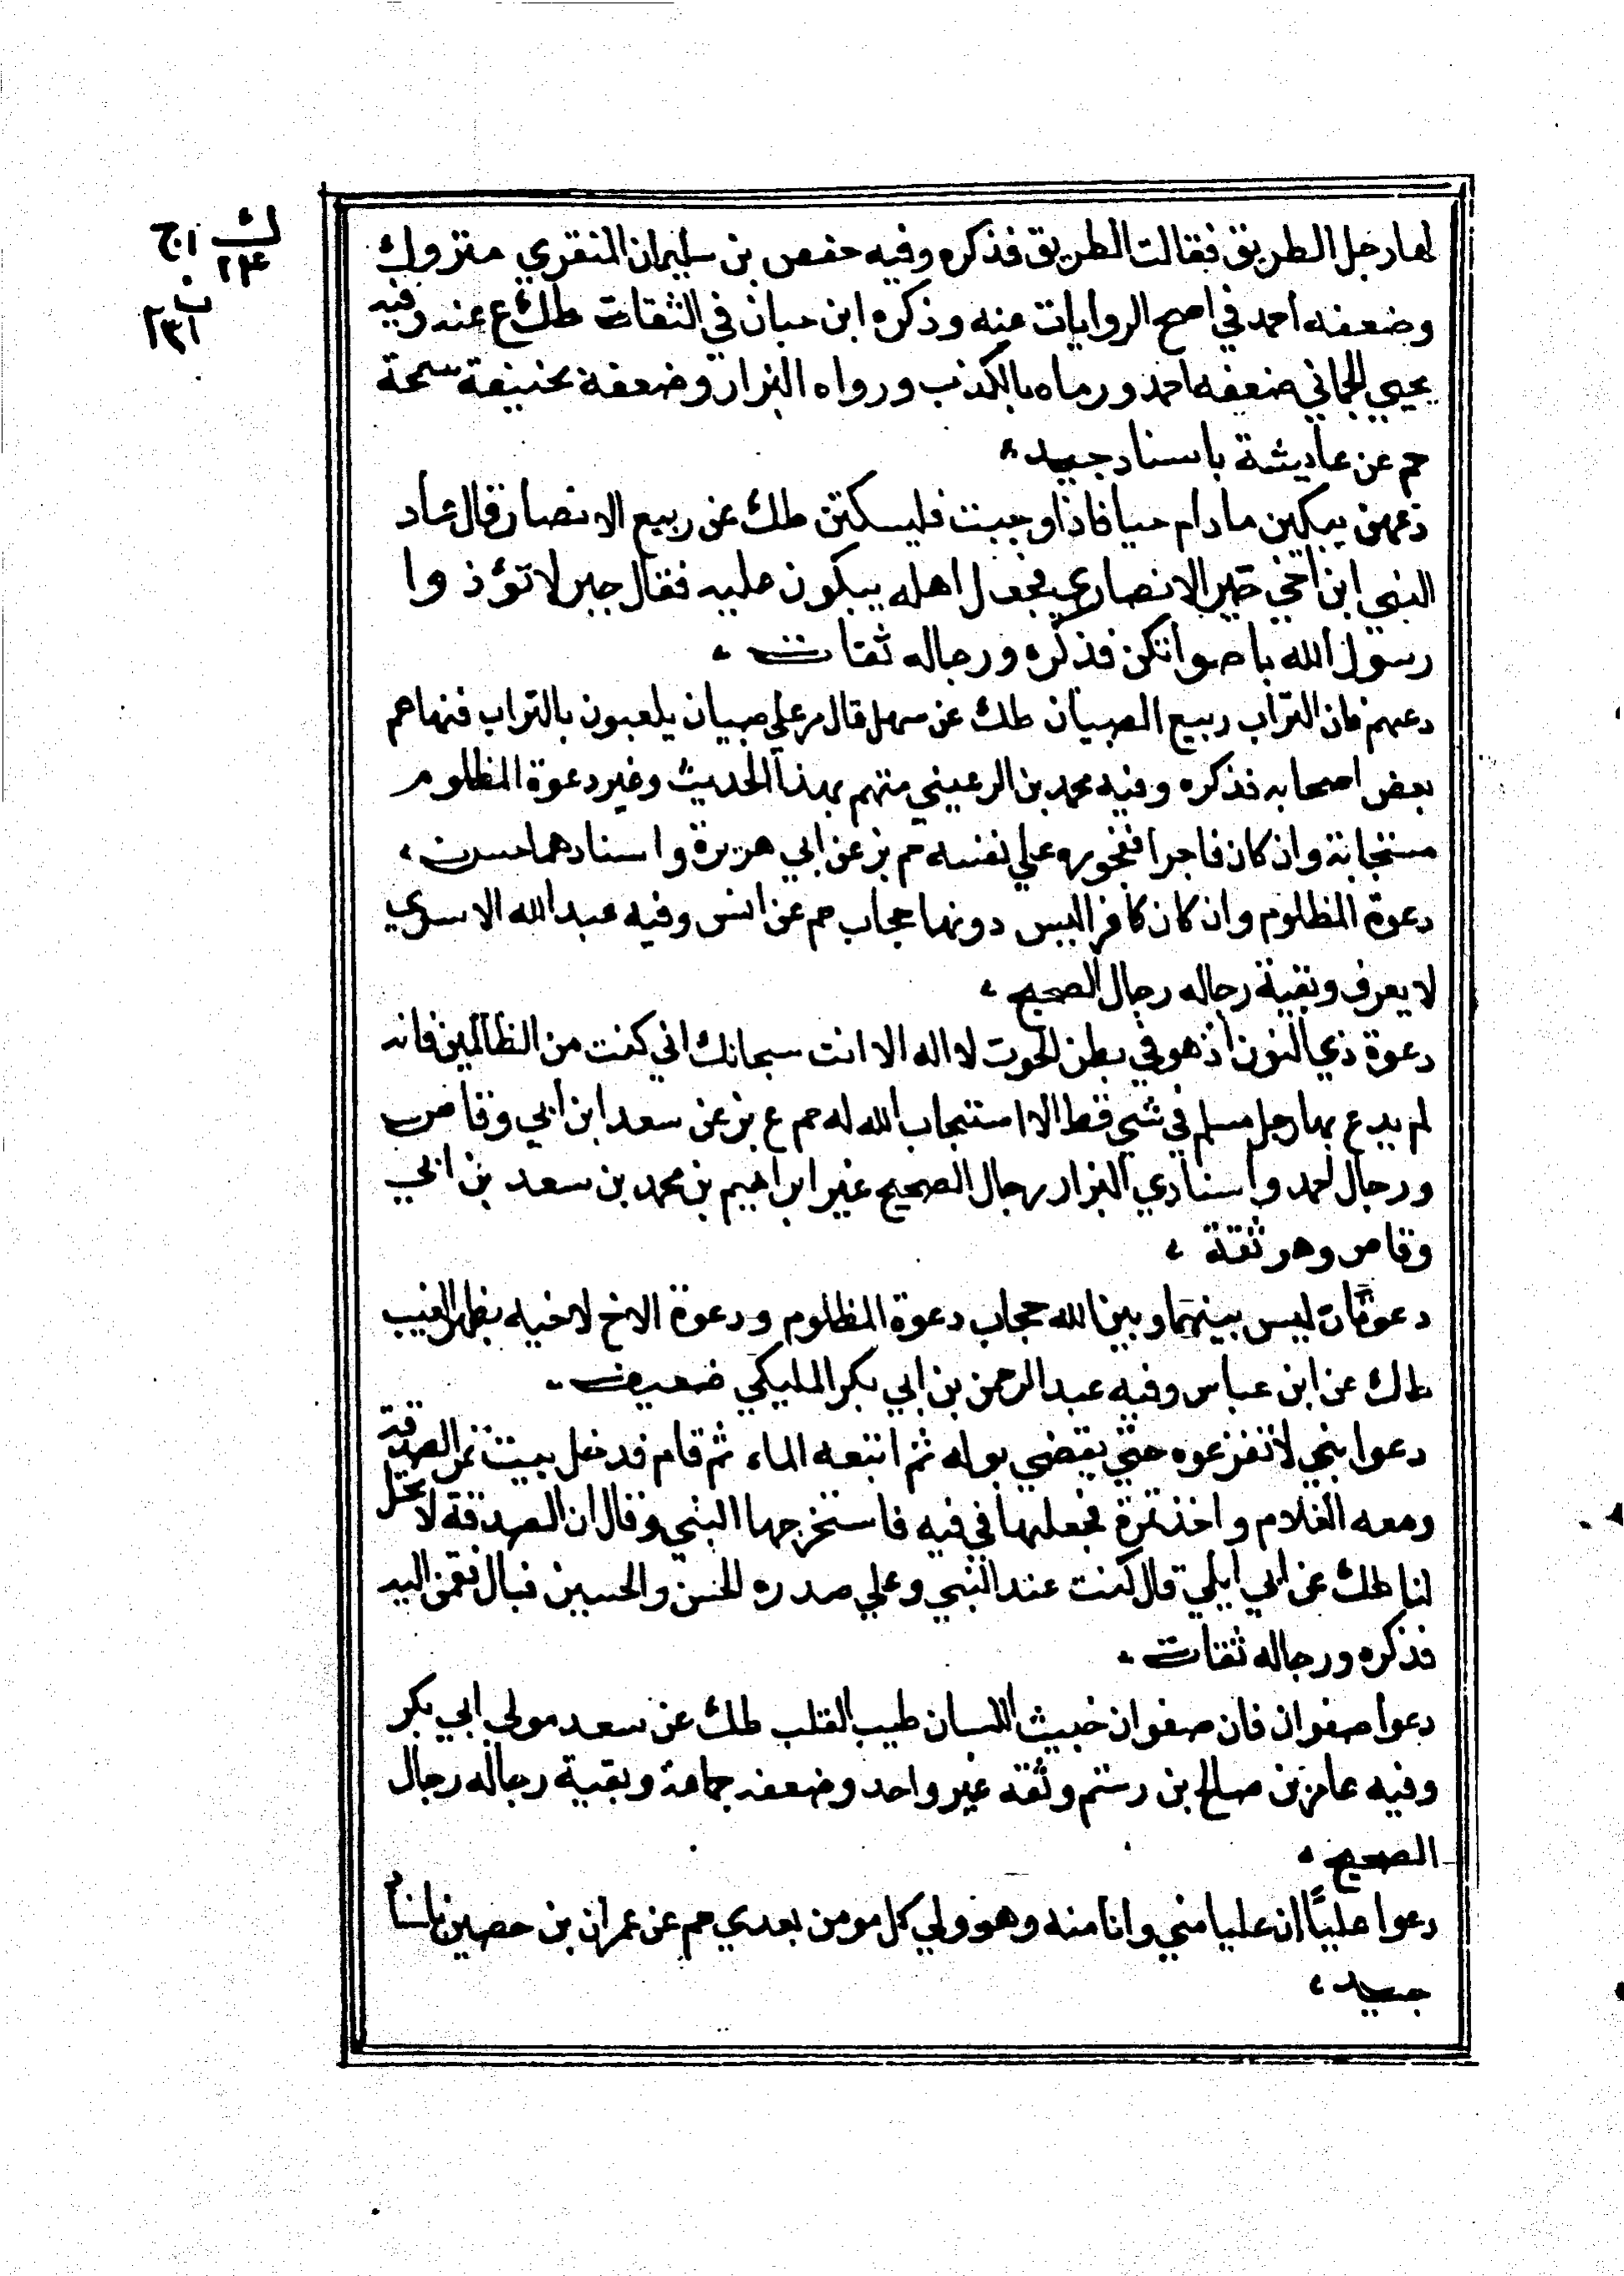 لها رجل الطريق فقالت الطريق فذكره وفيه حفص بن سليمان المنقري متروك
وضعفه احمد في اصح الروايات عنه وذكره ابن حبان في الثقات طك ع عنه وفيه
يحيي الحماني ضعفه احمد ورماه بالكذب ورواه البزار وضعفه بحنيفة سمحة
حم عن عايشة باسناد جيد
دعهن يبكين مادام حيا فاذا وجبت فليسكتن طك عن ربيع الانصار قال عاد
النبي ابن اخي جبير الانصاري فجعل اهله يبكون عليه فقال جبر لا تؤذوا
رسول الله باصواتكن فذكره ورجاله ثقات
دعهم فان التراب ربيع الصبيان طك عن سهل قال مر علي صبيان يلعبون بالتراب فنهاهم
بعض اصحابه فذكره وفيه محمد بن الرعيني متهم بهذا الحديث وغير دعوة المظلوم
مستجابة وان كان فاجرا ففجوره علي نفسه حم بز عن ابي هريرة واسنادهما حسن
دعوة المظلوم وان كان كافرا ليس دونها حجاب حم عن انس وفيه عبد الله الاسدي
لا يعرف وبقية رجاله رجال الصحيح
دعوة ذي النون اذ هو في بطن الحوت لا اله الا انت سبحانك اني كنت من الظالمين فانه
لم يدع بها رجل مسلم في شي قط الا استجاب الله له حم ع بز عن سعد ابن ابي وقاص
ورجال احمد واسنادي البزار رجال الصحيح غير ابراهيم بن محمد بن سعد بن ابي
وقاص وهو ثقة
دعوتان ليس بينهما وبين الله حجاب دعوة المظلوم ودعوة الاخ لاخيه بظهر الغيب
طك عن ابن عباس وفيه عبد الرحمن بن ابي بكر المليكي ضعيف
دعوا بني لا تفزعوه حتي يقضي بوله ثم اتبعه الماء ثم قام فدخل بيت تمر الصدقة
ومعه الغلام واخذ تمرة فجعلها في فيه فاستخرجها النبي وقال ان الصدقة لا تحل
لنا طك عن ابي ليلي قال كنت عند النبي وعلي صدره الحسن والحسين فبال فقمن اليه
فذكره ورجاله ثقات
دعوا صفوان فان صفوان خبيث اللسان طيب القلب طك عن سعد مولي ابي بكر
وفيه عامر بن صالح بن رستم وثقه غير واحد وضعفه جماعة وبقية رجاله رجال
الصحيح
دعوا عليًّا ان عليا مني وانا منه وهو ولي كل مومن بعدي حم عن عمران بن حصين باسناد
جيد